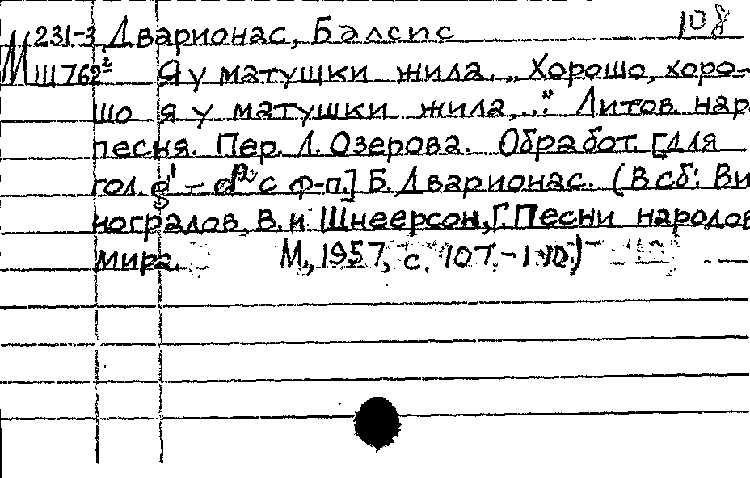 108
М 231-3 Дварионас, Балсис
Ш 762² Я у матушки жила. „Хорошо, хоро-
шо я у матушки жила,..." Литов. нар.
песня. Пер. Л. Озерова. Обработ. [для
гол. d¹ – d² с ф-п.] Б. Дварионас. (В сб: Ви
ноградов, В. и Шнеерсон, Г. Песни народов
мира. М., 1957, с. 107.-110.)